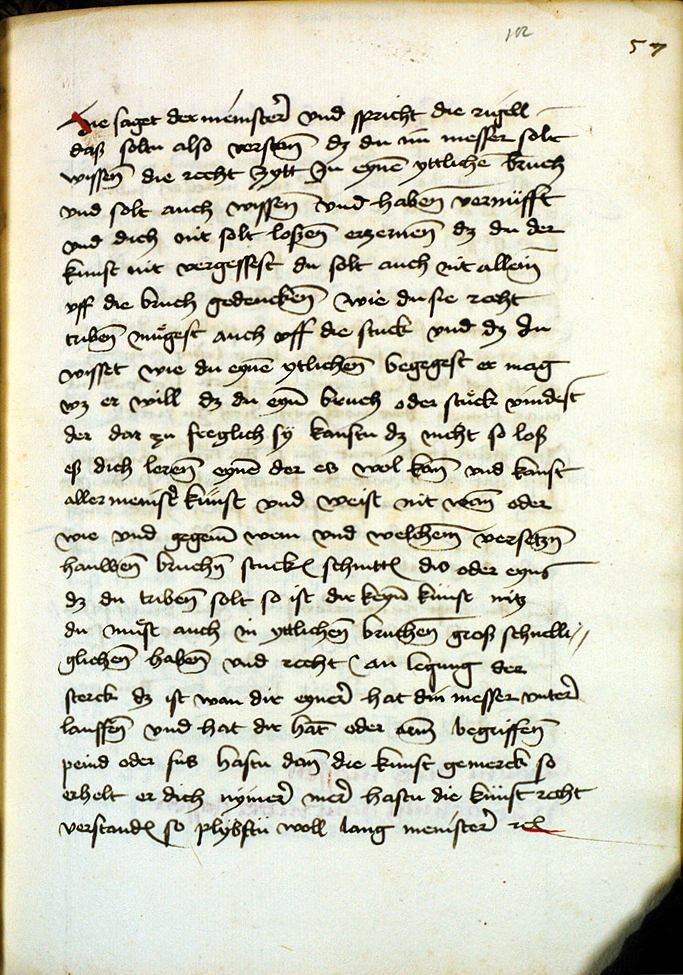 102
57
Hie saget der meinister und spricht die rigell
daß soltu also versten dz du im messer solt
wissen die recht zytt In eyne yttliche bruch
und solt auch wissen und haben vernüfft
und dich nit solt loßen erzernen dz du der
kunst nit vergessest du solt auch nit allein
uff die bruch gedencken wie du sie recht
triben mügest auch uff die stuck und dz du
wisset wie du eyne ytlichen begegest er mag
wz er will dz du eyn bruch oder stuck vindest
der dar zu freglich sy kanstu dz nicht so loß
eß dich leren eyne der es wol kan und kanst
aller meinster kunst und weist nit wan oder
wie und gegem wem und welchem versetzn
hauwen bruchn stuck schnitt dis oder eyns
dz du triben solt so ist dir keyn kunst nitz
du müst auch in yttlichen bruchen groß schnelli
glichen haben und recht an legung der
sterck dz ist wan dir eyner hat din messer unter
lauffen und hat dir hat oder arm begriffen
peind oder fus hastu dan die kunst gemerck so
erhelt er dich nymer mer hastu die kunst recht
verstand so plybstu woll lang meinister rel